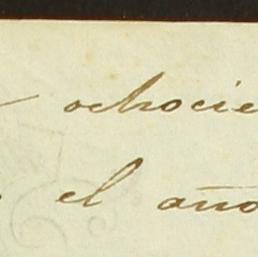 ochocie
el año